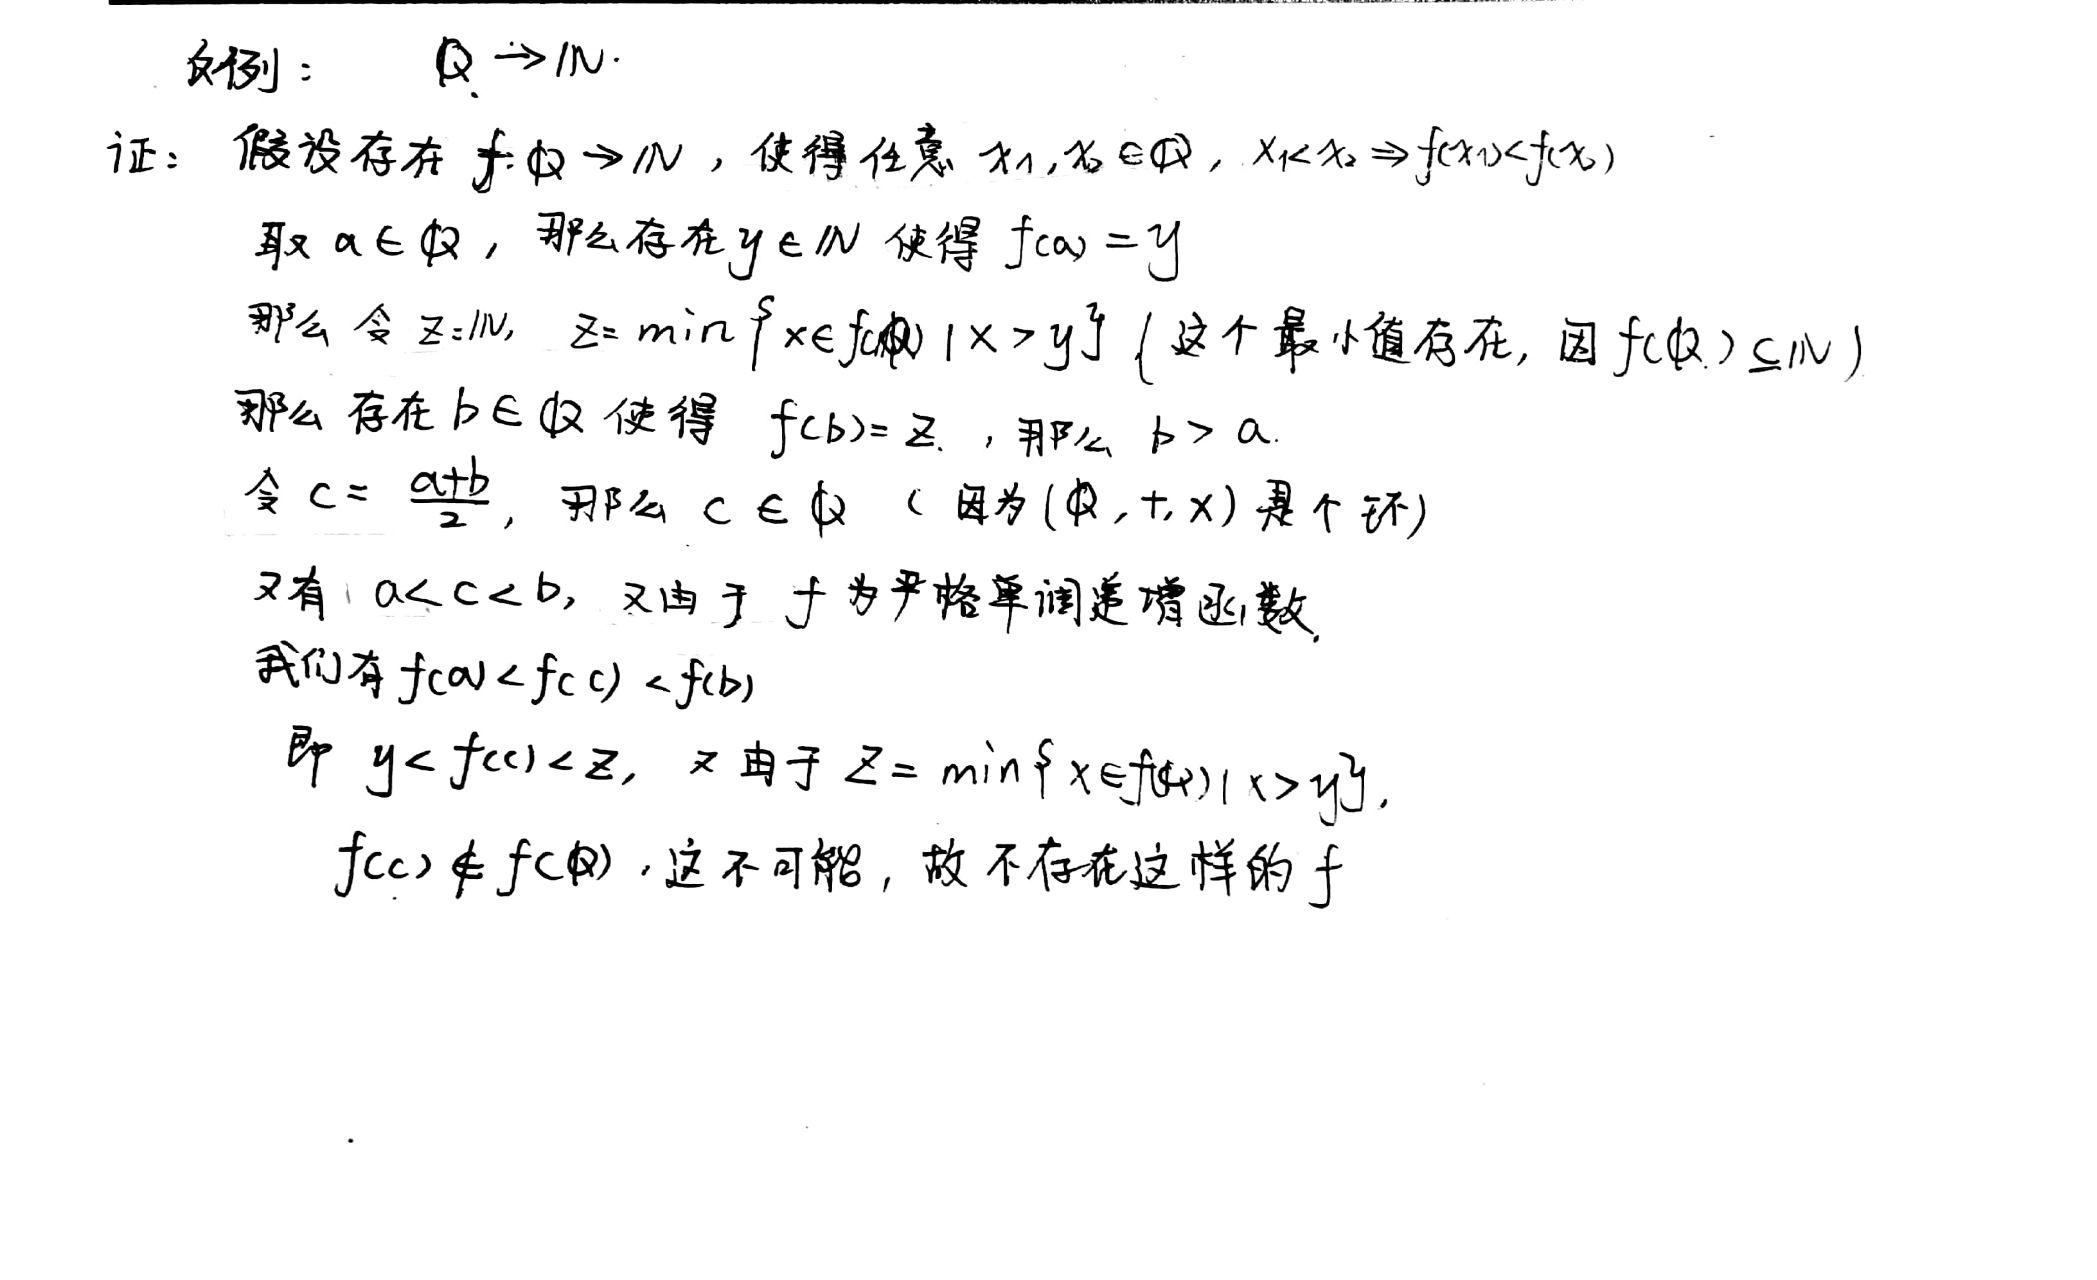 反例： Q → IN.
证： 假设存在 f: Q → IN，使得任意 x₁, x₂ ∈ Q, x₁< x₂ ⇒ f(x₁)<f(x₂)
取 a ∈ Q，那么存在 y ∈ IN 使得 f(a) = y
那么 令 z=IN, z= min{x∈f(Q) | x > y} (这个最小值存在, 因 f(Q) ⊆ IN)
那么 存在 b ∈ Q 使得 f(b)= z. ，那么 b > a.
令 c = (a+b)/2, 那么 c ∈ Q (因为(Q, +, ×) 是个环)
又有 a<c<b, 又由于 f 为严格单调递增函数,
我们有 f(a) < f(c) < f(b)
即 y< f(c) < z, 又由于 z = min{x∈f(Q) | x > y},
f(c) ∉ f(Q) , 这不可能, 故不存在这样的 f